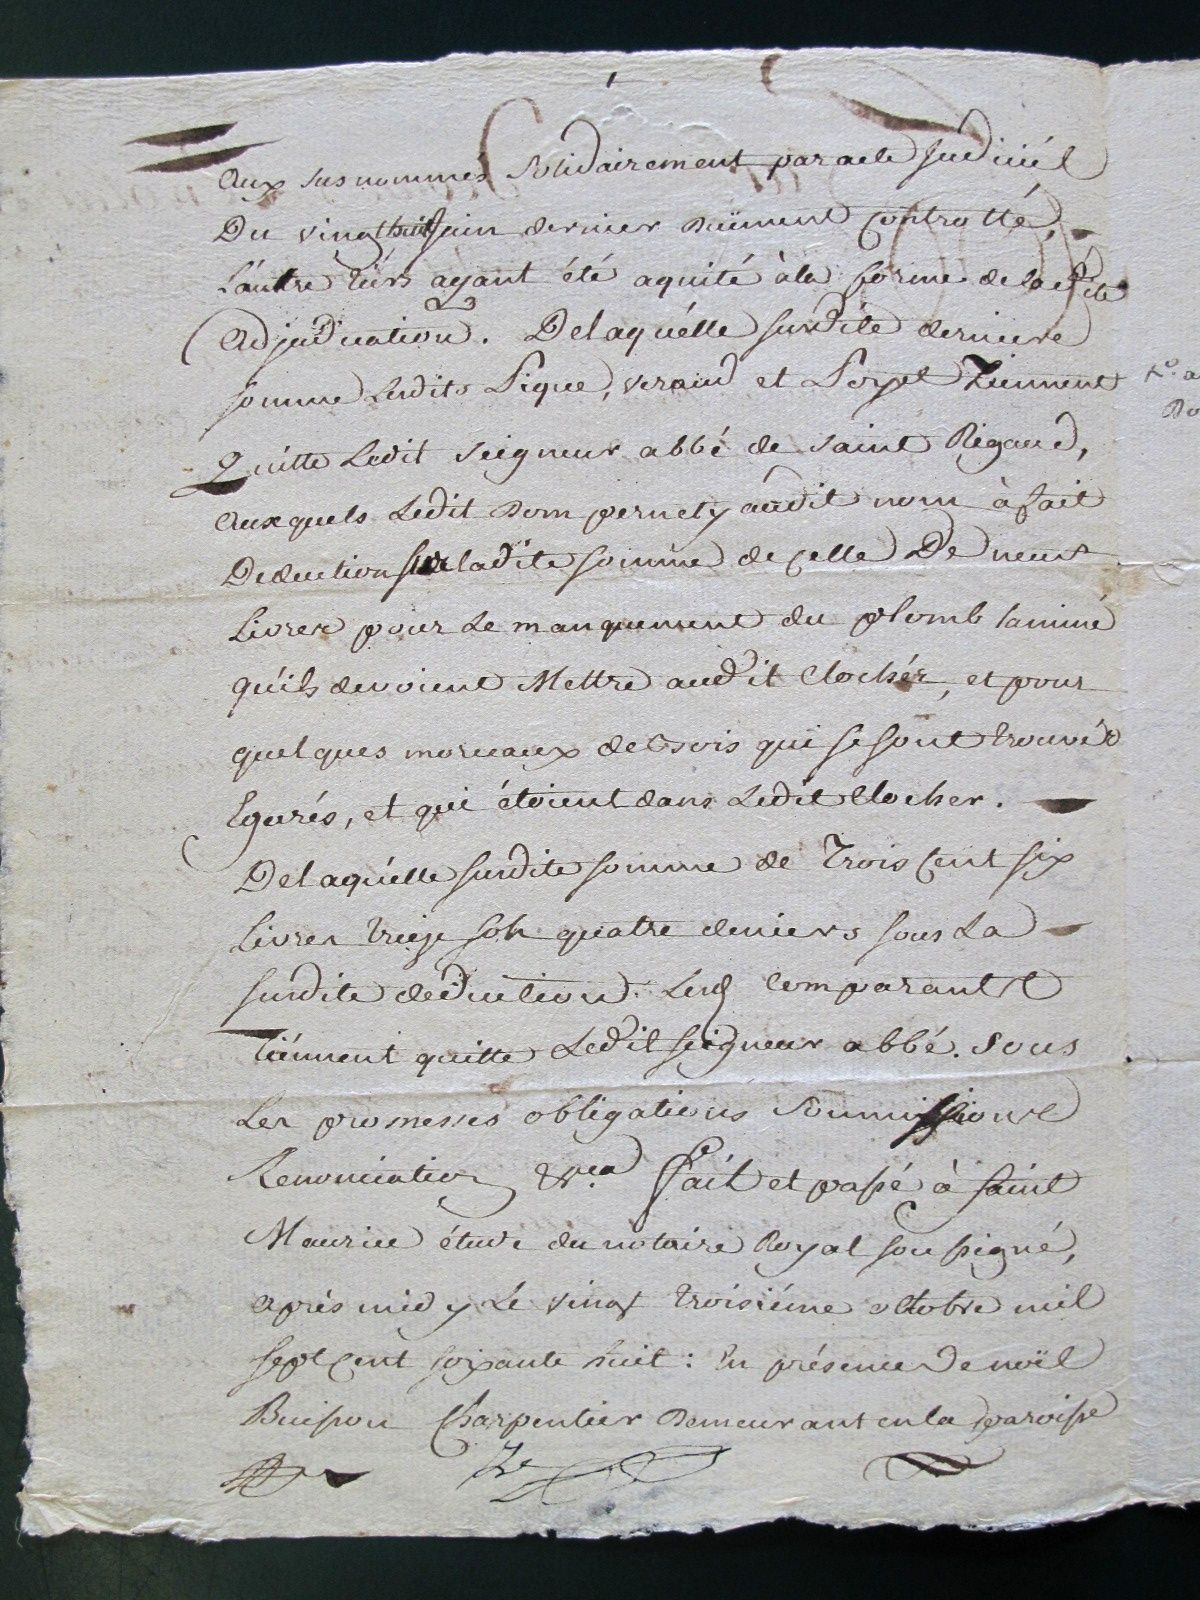 aux susnommés solidairement par acte Judiciel
Du vingthuit Juin dernier düement controllé,
L'autre tiérs ayant été aquité à la forme de ladite
adjudication. De laquélle surdite derniere
somme Lesdits Lique, veraud et Tiennent
quitte Ledit seigneur abbé de saint Rigaud,
auxquels Ledit Dom pernety audit nom à fait
Deduction sur ladite somme de celle De neuf
Livres pour Le manquement du plomb laminé
qu'ils devoient Mettre audit Clochér, et pour
quelques morceaux de bois qui se sont trouvés
Egarés, et qui étoient dans Ledit Clocher.
De laquélle surdite somme de Trois Cent six
Livres treize sols quatre deniers sous La
surdite déduction. Lesd Comparants
tiénnent quitte Ledit seigneur abbé. Sous
Les promesses obligations soumissions
Renonciation &ca fait et passé à saint
Maurice étude du notaire Royal soussigné,
après midy Le vingt troisiéme octobre mil
sept Cent soixante huit : En présence De noël
Buisson Charpentier Demeurant en la paroisse